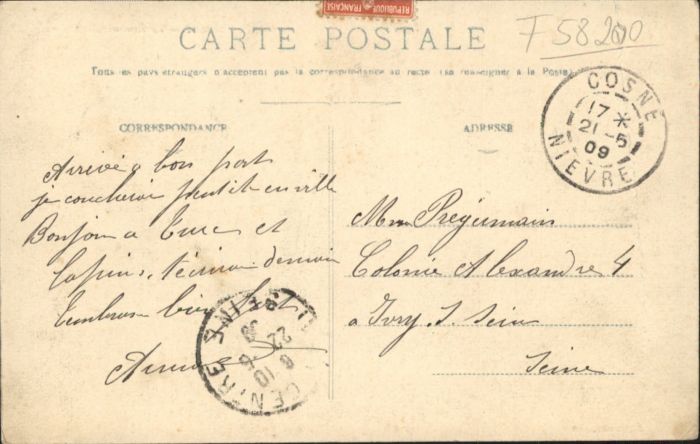 RÉPUBLIQUE FRANÇAISE
F 58200
CARTE POSTALE
Tous les pays étrangers n'acceptent pas la correspondance au recto (se renseigner à la Poste)
CORRESPONDANCE
ADRESSE
COSNE
17 *
21-5
09
NIEVRE
Arrivé a bon port
je coucherai en ville
Bonjour a et
Lapins, demain
bien fort
Mme Préjumain
Colonie Alexandre 4
a Ivry. S. Seine
Seine
CENTRE SEINE
10
22
09